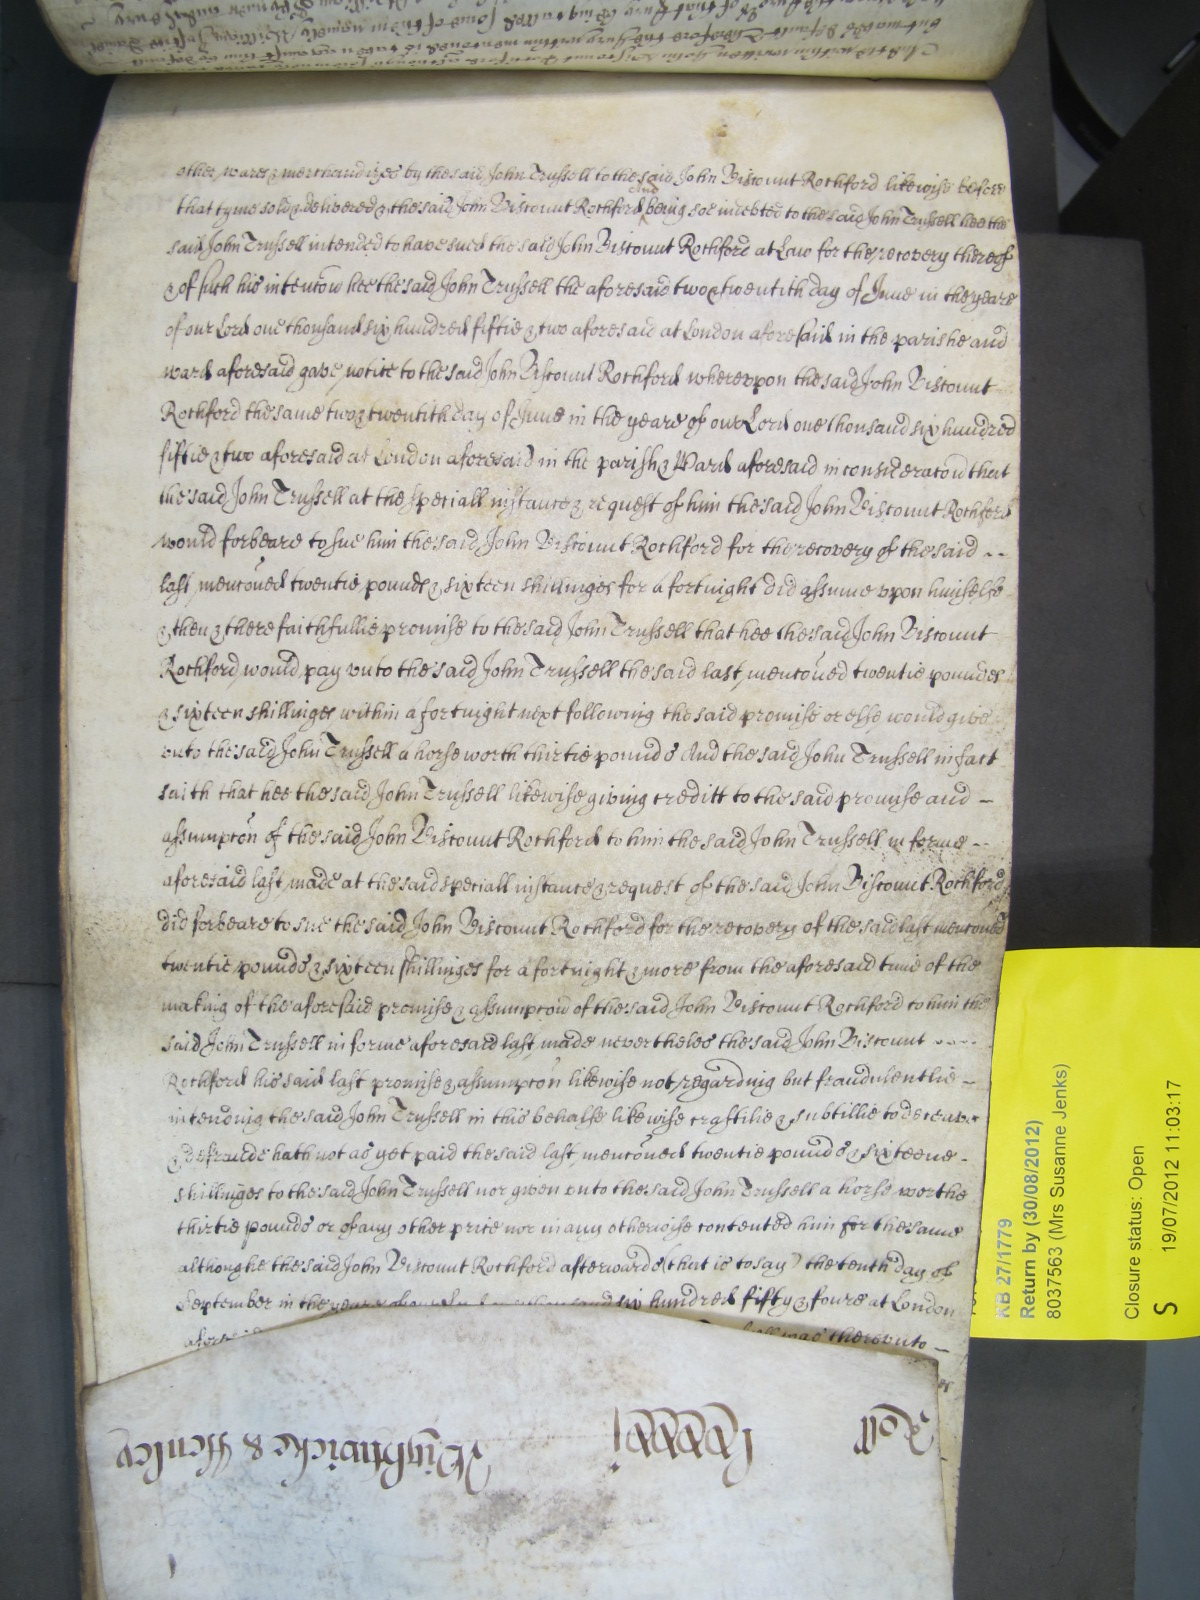 other wares & merchandizes by the said John Trussell to the said John Viscount Rochford likewise before
that tyme sold & delivered & the said John Viscount Rochford and being soe indebted to the said John Trussell hee the
said John Trussell intended to have sued the said John Viscount Rochford at Law for the recovery thereof
& of such his intencon hee the said John Trussell the aforesaid two & twentith day of June in the yeare
of our Lord one thousand six hundred fiftie & two aforesaid at London aforesaid in the parishe and
ward aforesaid gave notice to the said John Viscount Rochford whereupon the said John Viscount
Rochford the same two & twentith day of June in the yeare of our Lord one thousand six hundred
fiftie & two aforesaid at London aforesaid in the parish & Ward aforesaid in consideracon that
the said John Trussell at the speciall instance & request of him the said John Viscount Rochford
would forbeare to sue him the said John Viscount Rochford for the recovery of the said --
last menconed twentie pounds & sixteen shillinges for a fortnight did assume upon himselfe
& then & there faithfullie promise to the said John Trussell that hee the said John Viscount
Rochford would pay unto the said John Trussell the said last menconed twentie poundes
& sixteen shillinges within a fortnight next following the said promise or else would give
unto the said John Trussell a horse worth thirtie pounds And the said John Trussell in fact
saith that hee the said John Trussell likewise giving creditt to the said promise and –
assumpcon of the said John Viscount Rochford to him the said John Trussell in forme --
aforesaid last made at the said speciall instance & request of the said John Viscount Rochford
did forbeare to sue the said John Viscount Rochford for the recovery of the said last menconed
twentie pounds & sixteen shillinges for a fortnight & more from the aforesaid time of the
making of the aforesaid promise & assumpcon of the said John Viscount Rochford to him the
said John Trussell in forme aforesaid last made nevertheles the said John Viscount ----
Rochford his said last promise & assumpcon likewise not regarding but fraudulentlie –
intending the said John Trussell in this behalfe likewise craftilie & subtillie to deceive
& defraude hath not as yet paid the said last menconed twentie pounds & sixteene -
shillinges to the said John Trussell nor given unto the said John Trussell a horse worthe
thirtie pounds or of any other price nor in any otherwise contented him for the same
althoughe the said John Viscount Rochford afterwards (that is to say) the tenth day of
September in the yeare six hundred fifty & foure at London
thereunto –
Roll
lxxxxi
Wightwicke & Henley
KB 27/1779
Return by (30/08/2012)
8037563 (Mrs Susanne Jenks)
Closure status: Open
S 19/07/2012 11:03:17